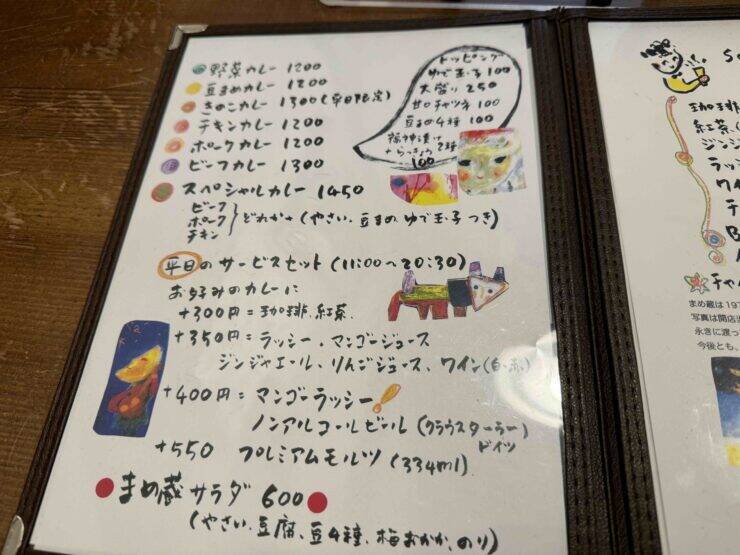 野菜カレー 1200
豆まめカレー 1200
きのこカレー 1300 (平日限定)
チキンカレー 1200
ポークカレー 1200
ビーフカレー 1300
スペシャルカレー 1450
ビーフ
ポーク
チキン
どれか+(やさい、豆まめ、ゆで玉子つき)
トッピング
ゆで玉子 100
大盛り 250
甘口チャツネ 100
豆まめ4種 100
福神漬け
+らっきょう 2種
100
平日のサービスセット (11:00〜20:30)
お好みのカレーに
+300円=珈琲、紅茶
+350円=ラッシー、マンゴージュース
ジンジャエール、りんごジュース、ワイン(白・赤)
+400円=マンゴーラッシー!
ノンアルコールビール (クラウスターラー)
ドイツ
+550 プレミアムモルツ (334ml)
まめ蔵サラダ 600
(やさい、豆腐、豆4種、梅おかか、のり)
珈琲
紅茶
ジンジ
ラッ
ワイン
チ
チャイ
まめ蔵は197
写真は開店
永きに渡っ
今後とも、